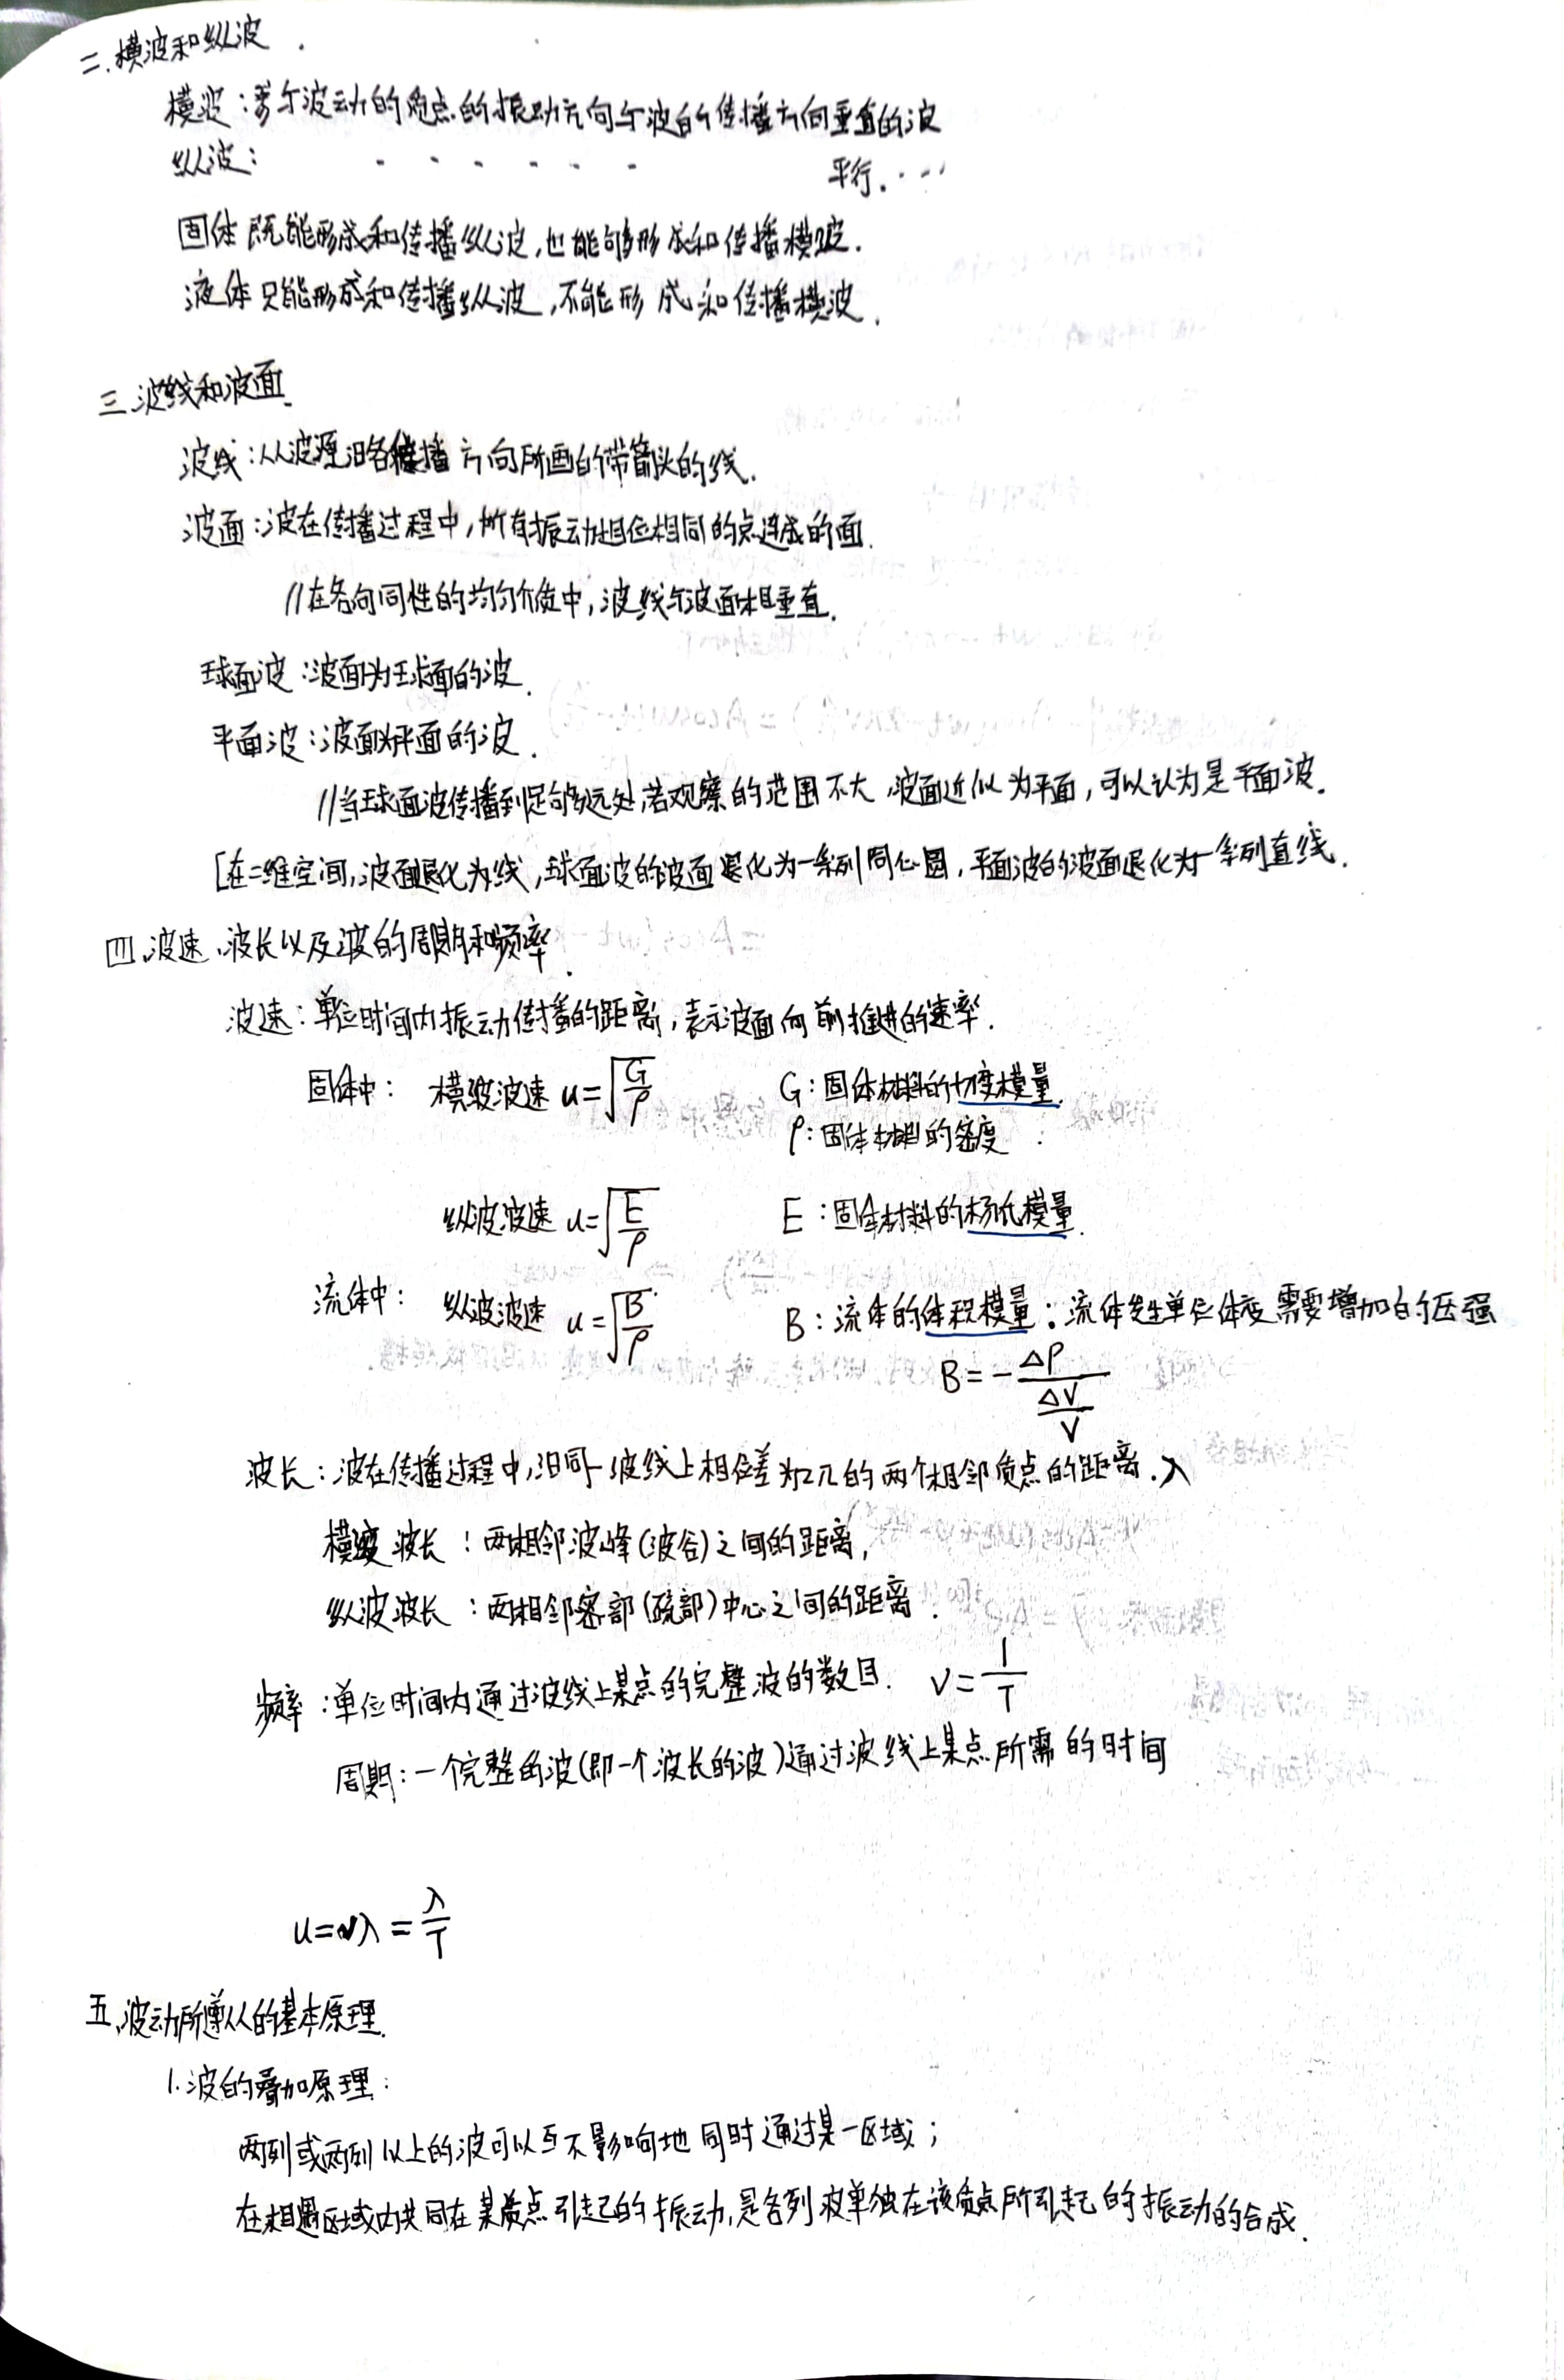 二.横波和纵波.
横波:参与波动的质点的振动方向与波的传播方向垂直的波
纵波: · · · · · · 平行. · · ·
固体既能形成和传播纵波,也能够形成和传播横波.
液体只能形成和传播纵波,不能形成和传播横波.
三.波线和波面.
波线:从波源沿各传播方向所画的带箭头的线.
波面:波在传播过程中,所有振动相位相同的点连成的面.
//在各向同性的均匀介质中,波线与波面相垂直.
球面波:波面为球面的波.
平面波:波面为平面的波.
//当球面波传播到足够远处,若观察的范围不大,波面近似为平面,可以认为是平面波.
[在二维空间,波面退化为线,球面波的波面退化为一系列同心圆,平面波的波面退化为一系列直线.
四.波速、波长以及波的周期和频率.
波速:单位时间内振动传播的距离,表示波面向前推进的速率.
固体中: 横波波速 u=√(G/ρ) G:固体材料的切变模量.
ρ:固体材料的密度.
纵波波速 u=√(E/ρ) E:固体材料的杨氏模量.
流体中: 纵波波速 u=√(B/ρ) B:流体的体积模量:流体发生单位体变需要增加的压强
B=-ΔP/(ΔV/V)
波长:波在传播过程中,沿同一波线上相位差为2π的两个相邻质点的距离.λ
横波波长:两相邻波峰(波谷)之间的距离,
纵波波长:两相邻密部(疏部)中心之间的距离.
频率:单位时间内通过波线上某点的完整波的数目. ν=1/T
周期:一个完整的波(即一个波长的波)通过波线上某点所需的时间.
u=νλ=λ/T
五.波动所遵从的基本原理.
1.波的叠加原理:
两列或两列以上的波可以互不影响地同时通过某一区域;
在相遇区域内共同在某质点引起的振动,是各列波单独在该质点所引起的振动的合成.